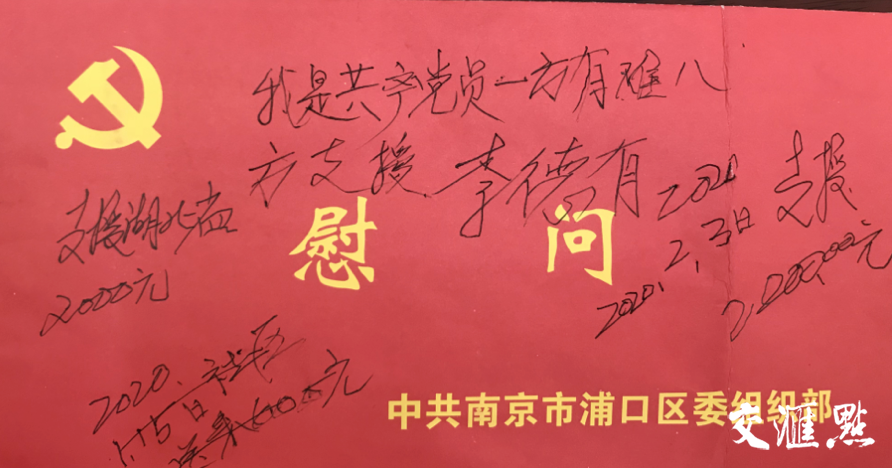 我是共产党员一方有难八
方支援 李德有
支援湖北省
2000元
慰问
2020
2020.2.3日
支援
2000.00元
2020.
1.15日
元
中共南京市浦口区委组织部
交汇点